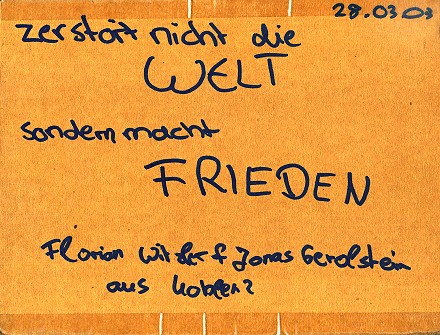 28.03 03
zerstört nicht die
WELT
sondern macht
FRIEDEN
Florian & Jonas Gerolstein
aus Koblenz